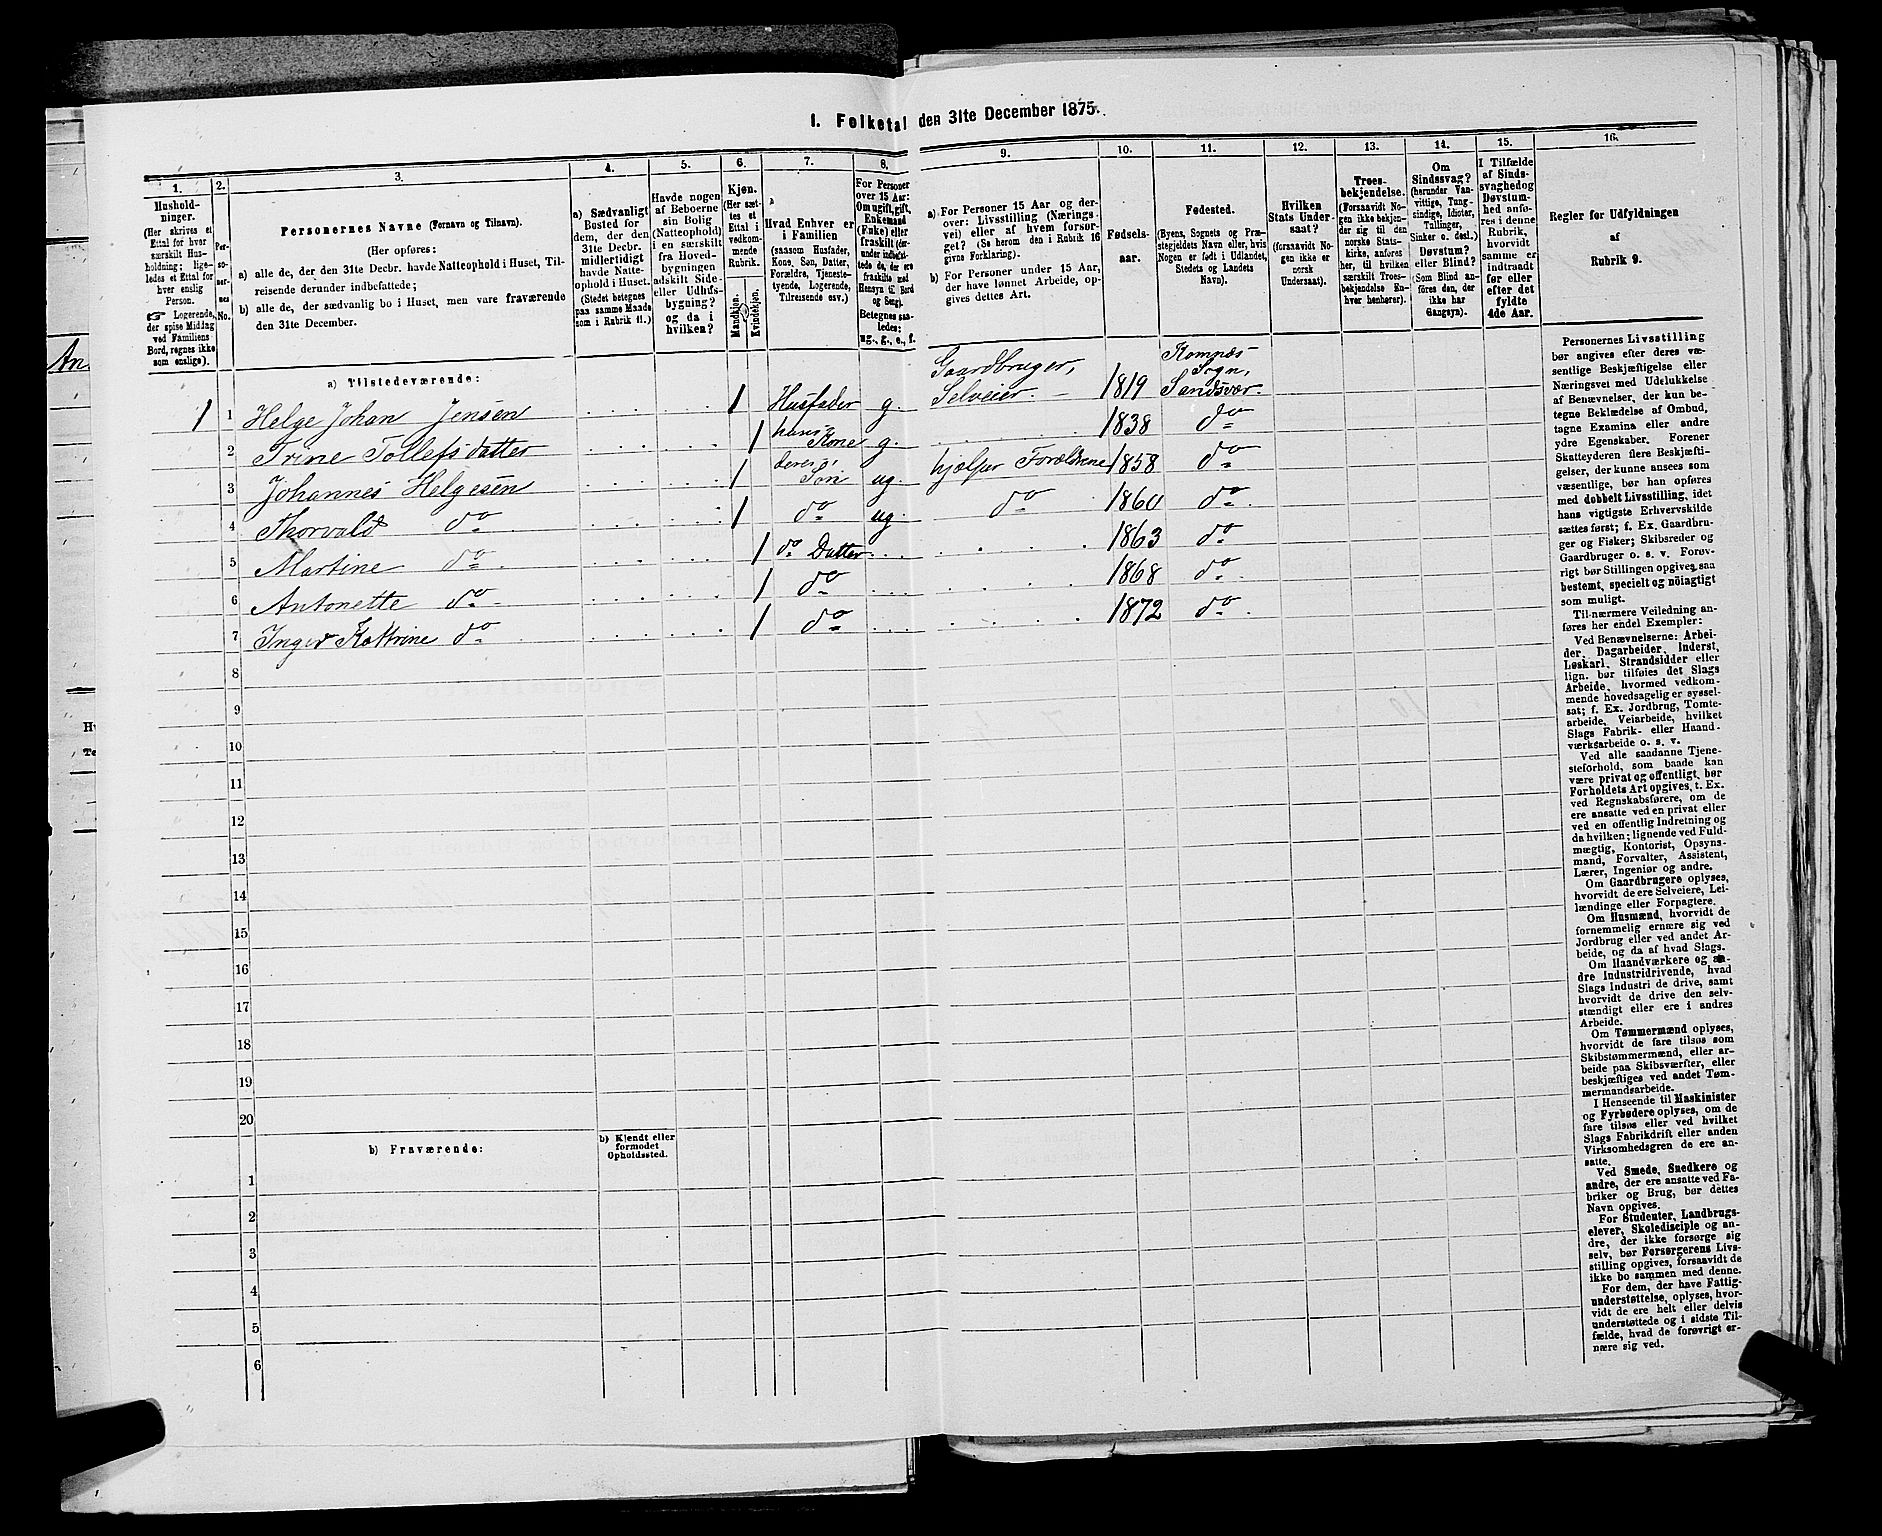 I. Folketal den 31te December 1875.
1.
Hushold-
ninger.
(Her skrives et
Ettal for hver
særskilt Hus-
holdning; lige-
ledes et Ettal for
hver enslig
Person.
☞ Logerende,
der spise Middag
ved Familiens
Bord, regnes ikke
som enslige).
2.
Per-
so-
ner-
nes
No.
3.
Personernes Navne (Fornavn og Tilnavn).
(Her opføres:
a) alle de, der den 31te Decbr. havde Natteophold i Huset, Til-
reisende derunder indbefattede;
b) alle de, der sædvanlig bo i Huset, men vare fraværende
den 31te December.
4.
a) Sædvanligt
Bosted for
dem, der den
31te Decbr.
midlertidigt
havde Natte-
ophold i Huset.
(Stedet betegnes
paa samme Maade
som i Rubrik 11.)
5.
Havde nogen
af Beboerne
sin Bolig
(Natteophold)
i en særskilt
fra Hoved-
bygningen
adskilt Side-
eller Udhus-
bygning?
og da i
hvilken?
6.
Kjøn.
(Her sæt-
tes et
Ettal i
vedkom-
mende
Rubrik.
Mandkjøn.
Kvindekjøn.
7.
Hvad Enhver er
i Familien
(saasom Husfader,
Kone, Søn, Datter,
Forældre, Tjeneste-
tyende, Logerende,
Tilreisende osv.)
8.
For Personer
over 15 Aar:
Om ugift, gift,
Enkemand
(Enke) eller
fraskilt (der-
under indbefat-
tede de, der ere
fraskilte med
Hensyn til Bord
og Seng).
Betegnes saa-
ledes:
ug., g., e., f.
9.
a) For Personer 15 Aar og der-
over: Livsstilling (Nærings-
vei) eller af hvem forsør-
get? (Se herom den i Rubrik 16
givne Forklaring).
b) For Personer under 15 Aar,
der have lønnet Arbeide, op-
gives dettes Art.
10.
Fødsels-
aar.
11.
Fødested.
(Byens, Sognets og Præ-
stegjeldets Navn eller, hvis
Nogen er født i Udlandet,
Stedets og Landets
Navn).
12.
Hvilken
Stats Under-
saat?
(forsaavidt No-
gen ikke er
norsk
Undersaat).
13.
Troes-
bekjendelse.
(Forsaavidt No-
gen ikke bekjen-
der sig til den
norske Stats-
kirke, anføres
her, til hvilken
særskilt Troes-
bekjendelse En-
hver henhører).
14.
Om
Sindssvag?
(herunder Van-
vittige, Tung-
sindige, Idioter,
Tullinger,
Sinker o. desl.)
Døvstum?
eller Blind?
(Som Blind an-
føres den, der
ikke har
Gangsyn).
15.
I Tilfælde
af Sinds-
svaghed og
Døvstum-
hed anfø-
res i denne
Rubrik,
hvorvidt
samme er
indtraadt
før eller
efter det
fyldte
4de Aar.
16.
Regler for Udfyldningen
af
Rubrik 9.
a) Tilstedeværende:
1 1 Helge Johan Jensen 1 Husfader g. Gaardbruger, Selveier. — 1819 Komnæs Sogn, Sandsvær.
2 Trine Tollefsdatter 1 hans Kone g. 1838 do
3 Johannes Helgesen 1 deres Søn ug. hjælper Forældrene 1858 do
4 Thorvald do 1 do ug. do 1860 do
5 Martine do 1 do Datter 1863 do
6 Antonette do 1 do 1868 do
7 Inger Kattrine do 1 do 1872 do
8
9
10
11
12
13
14
15
16
17
18
19
20
b) Fraværende:
b) Kjendt eller
formodet
Opholdssted.
1
2
3
4
5
6
Personernes Livsstilling
bør angives efter deres væ-
sentlige Beskjæftigelse eller
Næringsvei med Udelukkelse
af Benævnelser, der kun be-
tegne Beklædelse af Ombud,
tagne Examina eller andre
ydre Egenskaber. Forener
Skatteyderen flere Beskjæfti-
gelser, der kunne ansees som
væsentlige, bør han opføres
med dobbelt Livsstilling, idet
hans vigtigste Erhvervskilde
sættes først; f. Ex. Gaardbru-
ger og Fisker; Skibsreder og
Gaardbruger o. s. v. Forøv-
rigt bør Stillingen opgives saa
bestemt, specielt og nöiagtigt
som muligt.
Til nærmere Veiledning an-
føres her endel Exempler:
Ved Benævnelserne: Arbei-
der, Dagarbeider, Inderst,
Løskarl, Strandsidder eller
lign. bør tilføies det Slags
Arbeide, hvormed vedkom-
mende hovedsagelig er syssel-
sat; f. Ex. Jordbrug, Tomte-
arbeide, Veiarbeide, hvilket
Slags Fabrik- eller Haand-
værksarbeide o. s. v.
Ved alle saadanne Tjene-
steforhold, som baade kan
være privat og offentligt, bør
Forholdets Art opgives, t. Ex.
ved Regnskabsførere, om de
ere ansatte ved en privat eller
ved en offentlig Indretning og
da hvilken; lignende ved Fuld-
mægtig, Kontorist, Opsyns-
mand, Forvalter, Assistent,
Lærer, Ingeniør og andre.
Om Gaardbrugere oplyses,
hvorvidt de ere Selveiere, Lei-
lændinge eller Forpagtere.
Om Husmænd, hvorvidt de
fornemmelig ernære sig ved
Jordbrug eller ved andet Ar-
beide, og da af hvad Slags.
Om Haandværkere og an-
dre Industridrivende, hvad
Slags Industri de drive, samt
hvorvidt de drive den selv-
stændigt eller ere i andres
Arbeide.
Om Tømmermænd oplyses,
hvorvidt de fare tilsøs som
Skibstømmermænd, eller ar-
beide paa Skibsværfter, eller
beskjæftiges ved andet Tøm-
mermandsarbeide.
I Henseende til Maskinister
og Fyrbødere oplyses, om de
fare tilsøs eller ved hvilket
Slags Fabrikdrift eller anden
Virksomhedsgren de ere an-
satte.
Ved Smede, Snedkere og
andre, der ere ansatte ved Fa-
briker og Brug, bør dettes
Navn opgives.
For Studenter, Landbrugs-
elever, Skoledisciple og an-
dre, der ikke forsørge sig
selv, bør Forsørgerens Livs-
stilling opgives, forsaavidt de
ikke bo sammen med denne.
For dem, der have Fattig-
understøttelse, oplyses, hvor-
vidt de ere helt eller delvis
understøttede og i sidste Til-
fælde, hvad de forøvrigt er-
nære sig ved.